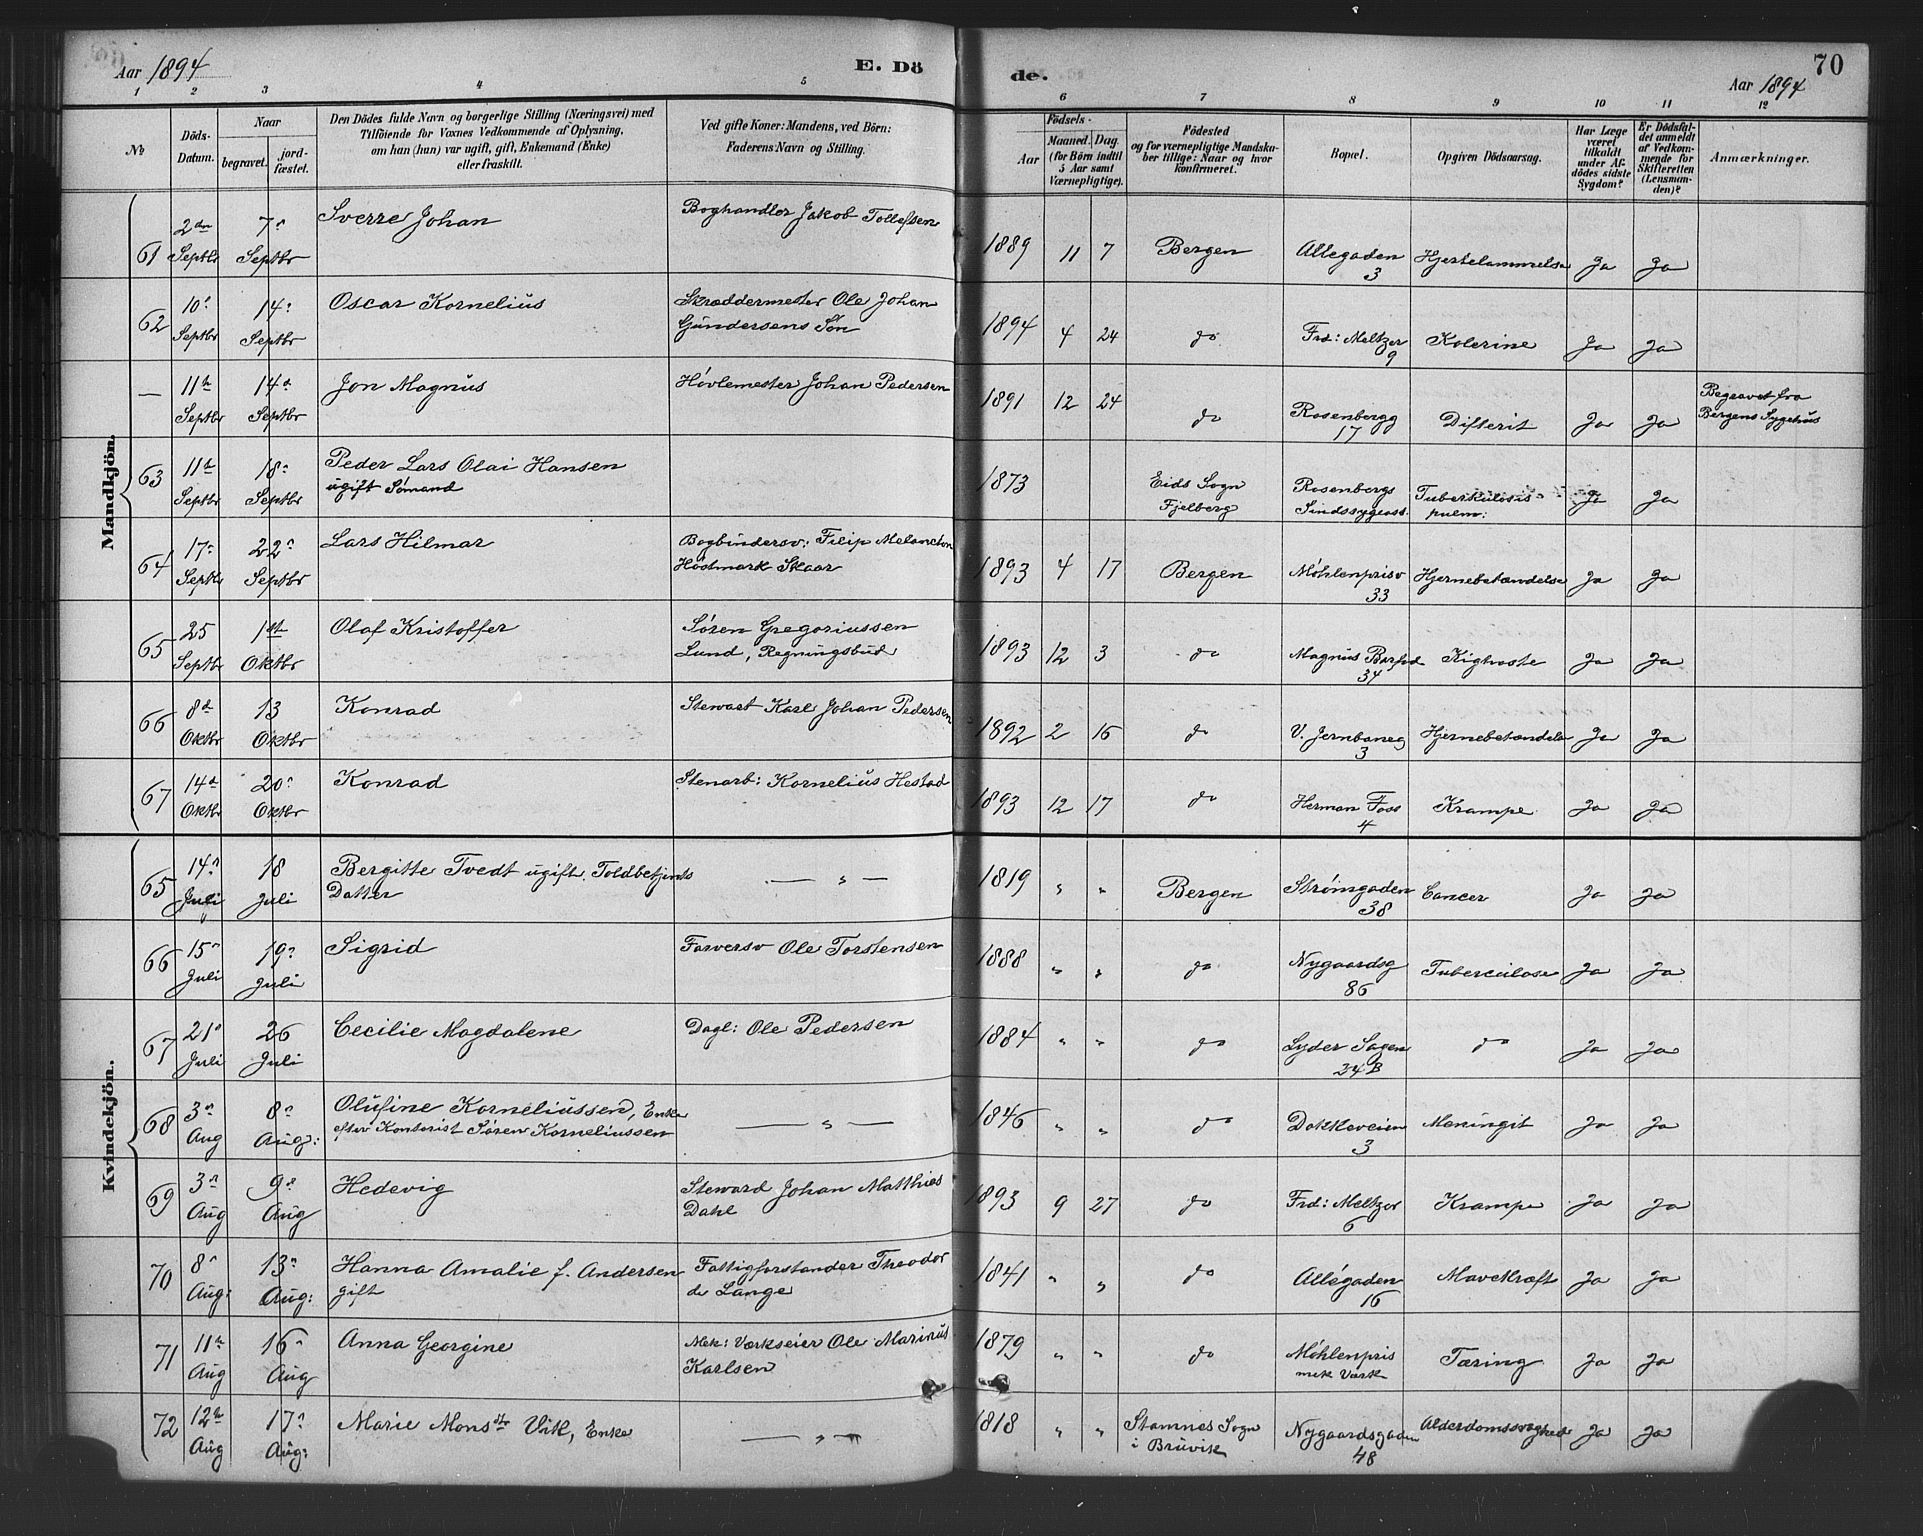 Aar 1894
E. Dö
de.
70
Aar 1894
1 2 3 4 5 6 7 8 9 10 11 12
№
Döds-
Datum.
Naar
begravet.
jord-
fæstet.
Den Dödes fulde Navn og borgerlige Stilling (Næringsvei) med
Tilföiende for Voxnes Vedkommende af Oplysning,
om han (hun) var ugift, gift, Enkemand (Enke)
eller fraskilt.
Ved gifte Koner: Mandens, ved Börn:
Faderens Navn og Stilling.
Födsels-
Aar
Maaned. Dag.
(for Börn indtil
5 Aar samt
Værnepligtige).
Födested
og for værnepligtige Mandska-
ber tillige: Naar og hvor
konfirmeret.
Bopæl.
Opgiven Dödsaarsag.
Har Læge
været
tilkaldt
under Af-
dödes sidste
Sygdom?
Er Dödsfal-
det anmeldt
af Vedkom-
mende for
Skifteretten
(Lensman-
den)?
Anmærkninger.
Mandkjön.
61 2den Septbr 7de Septbr Sverre Johan Boghandler Jakob Tollefsen 1889 11 7 Bergen Allegaden 3 Hjertelammelse Ja Ja
62 10de Septbr 14de Septbr Oscar Kornelius Skræddermester Ole Johan
Gundersens Søn 1894 4 24 do Frd: Meltzer 9 Kolerine Ja Ja
— 11te Septbr 14de Septbr Jon Magnus Høvlemester Johan Pedersen 1891 12 24 do Rosenbergg 17 Difterit Ja Ja Begravet fra
Bergens Sygehus
63 11te Septbr 18de Septbr Peder Lars Olai Hansen
ugift Sømand 1873 Eids Sogn
Fjelberg Rosenbergs
Sindssygeas. Tuberkulosis
pulm: Ja Ja
64 17de Septbr 22de Septbr Lars Hilmar Bogbindersv: Filip Melancton
Høstmark Skaar 1893 4 17 Bergen Møhlenprisv 33 Hjernebetændelse Ja Ja
65 25 Septbr 1ste Oktbr Olaf Kristoffer Søren Gregoriussen
Lund, Regningsbud 1893 12 3 do Magnus Barfod 34 Kighoste Ja Ja
66 8de Oktbr 13 Oktbr Konrad Stewart Karl Johan Pedersen 1892 2 16 do V. Jernbaneg 3 Hjernebetændelse Ja Ja
67 14de Oktbr 20de Oktbr Konrad Stenarb: Kornelius Hestad 1893 12 17 do Herman Foss 4 Krampe Ja Ja
Kvindekjön.
65 14de Juli 18 Juli Bergitte Tvedt ugift. Toldbetjents
Datter — „ — 1819 „ „ Bergen Strømgaden 38 Cancer Ja Ja
66 15de Juli 19de Juli Sigrid Farversv Ole Torstensen 1888 „ „ do Nygaardsg 86 Tuberculose Ja Ja
67 21de Juli 26 Juli Cecilie Magdalene Dagl: Ole Pedersen 1884 „ „ do Lyder Sagen 24 B do Ja Ja
68 3de Aug 8de Aug: Olufine Korneliussen, Enke
efter Kontorist Søren Korneliussen — „ — 1846 „ „ do Dokkeveien 3 Meningit Ja Ja
69 3de Aug 9de Aug Hedevig Steward Johan Matthias
Dahl 1893 9 27 do Frd: Meltzer 6 Krampe Ja Ja
70 8de Aug: 13de Aug: Hanna Amalie f. Andersen
gift Fattigforstander Theodor
de Lange 1841 „ „ do Allégaden 16 Mavekræft Ja Ja
71 11te Aug 16de Aug Anna Georgine Mek: Værkseier Ole Marinus
Karlsen 1879 „ „ do Møhlenpris
mek Værk Tæring Ja Ja
72 12te Aug 17de Aug: Marie Monsdtr Vik, Enke — „ — 1818 „ „ Stamnes Sogn
i Bruvik Nygaardsgaden 48 Alderdomssvaghed Ja Ja